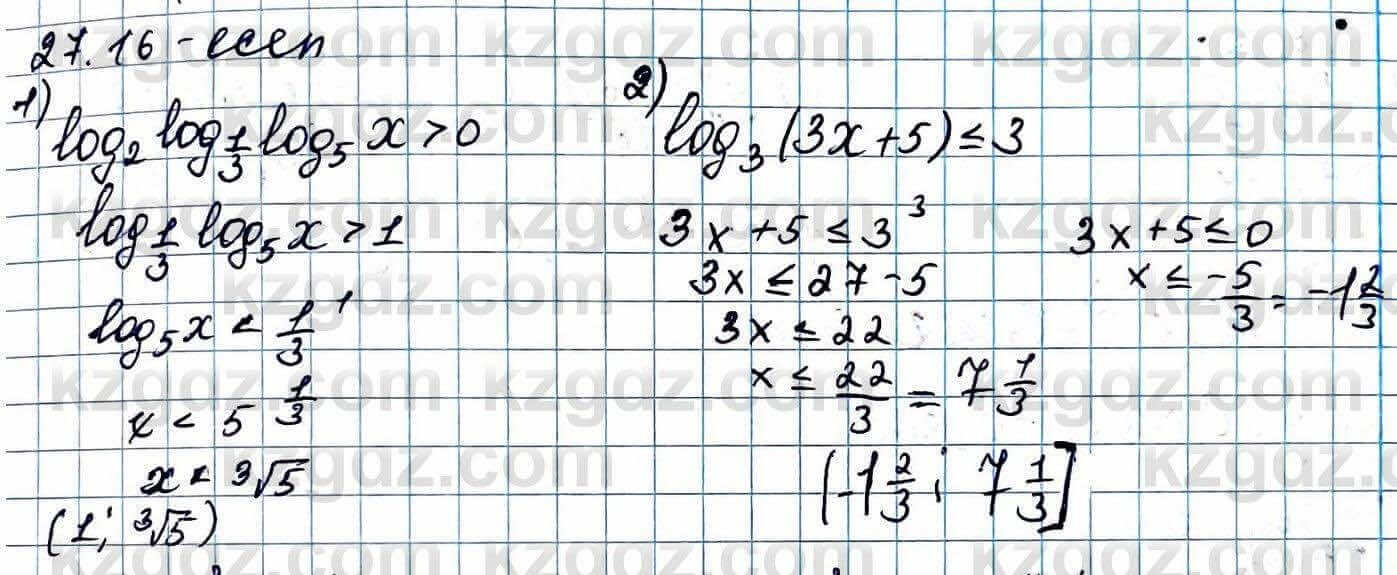 27.16-есеп
1)
log₂ log_{1/3} log₅ x > 0
log_{1/3} log₅ x > 1
log₅ x < (1/3)¹
x < 5^{1/3}
x < ³√5
(1; ³√5)
2)
log₃ (3x+5) ≤ 3
3x + 5 ≤ 3³
3x ≤ 27 - 5
3x ≤ 22
x ≤ 22/3 = 7 1/3
3x + 5 ≤ 0
x ≤ -5/3 = -1 2/3
(-1 2/3; 7 1/3]
kzgdz.com